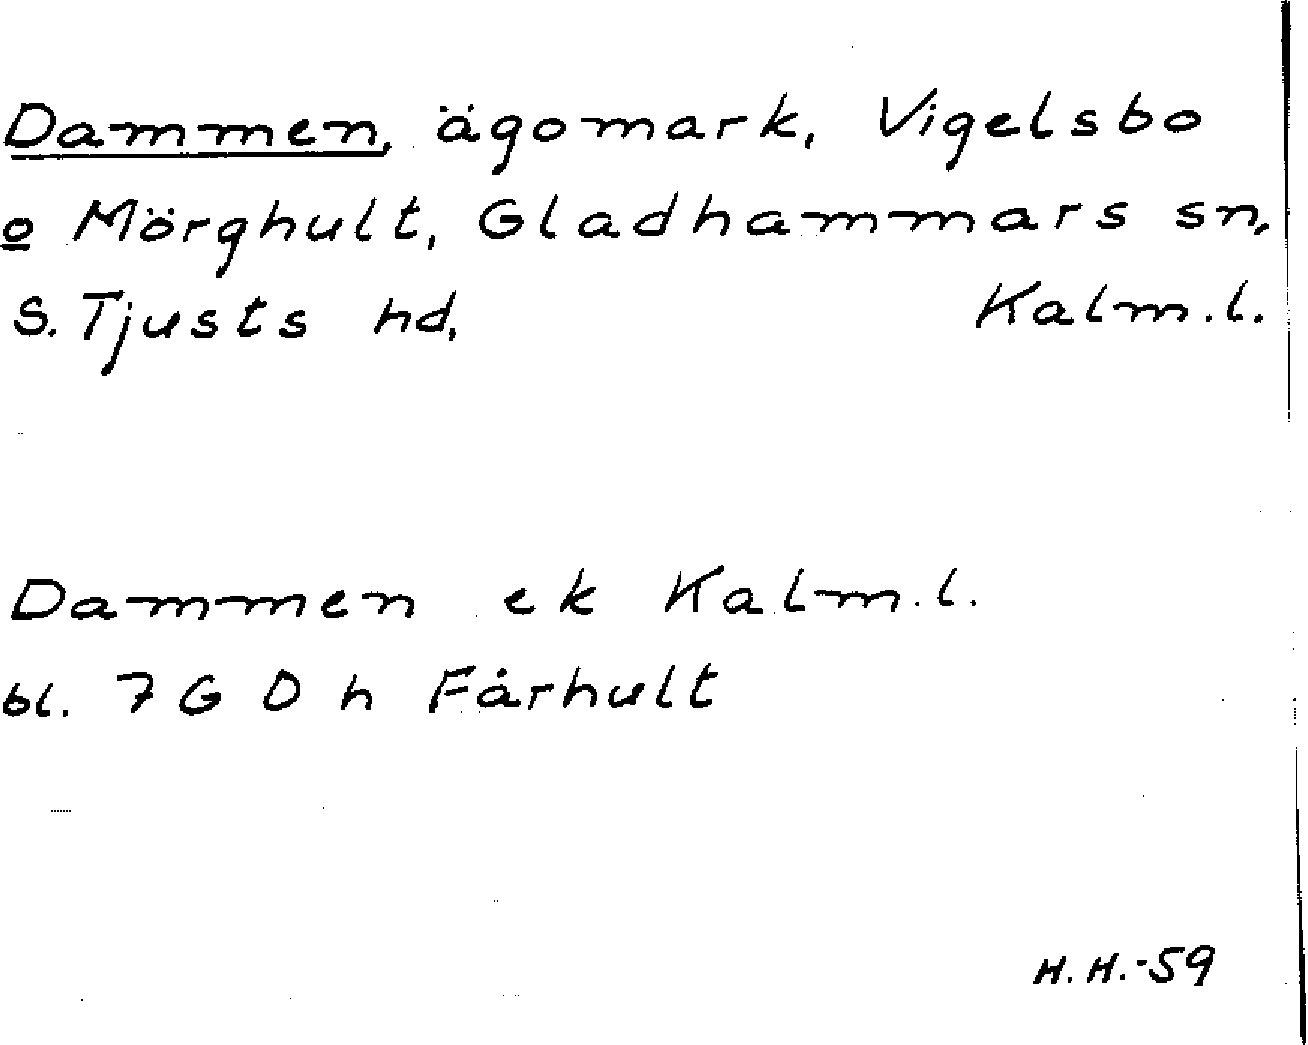 Dammen, ägomark, Vigelsbo
o Mörghult, Gladhammars sn,
S. Tjusts hd, Kalm.l.
Dammen ek Kalm.l.
bl. 7 G 0 h Fårhult
H.H.-59